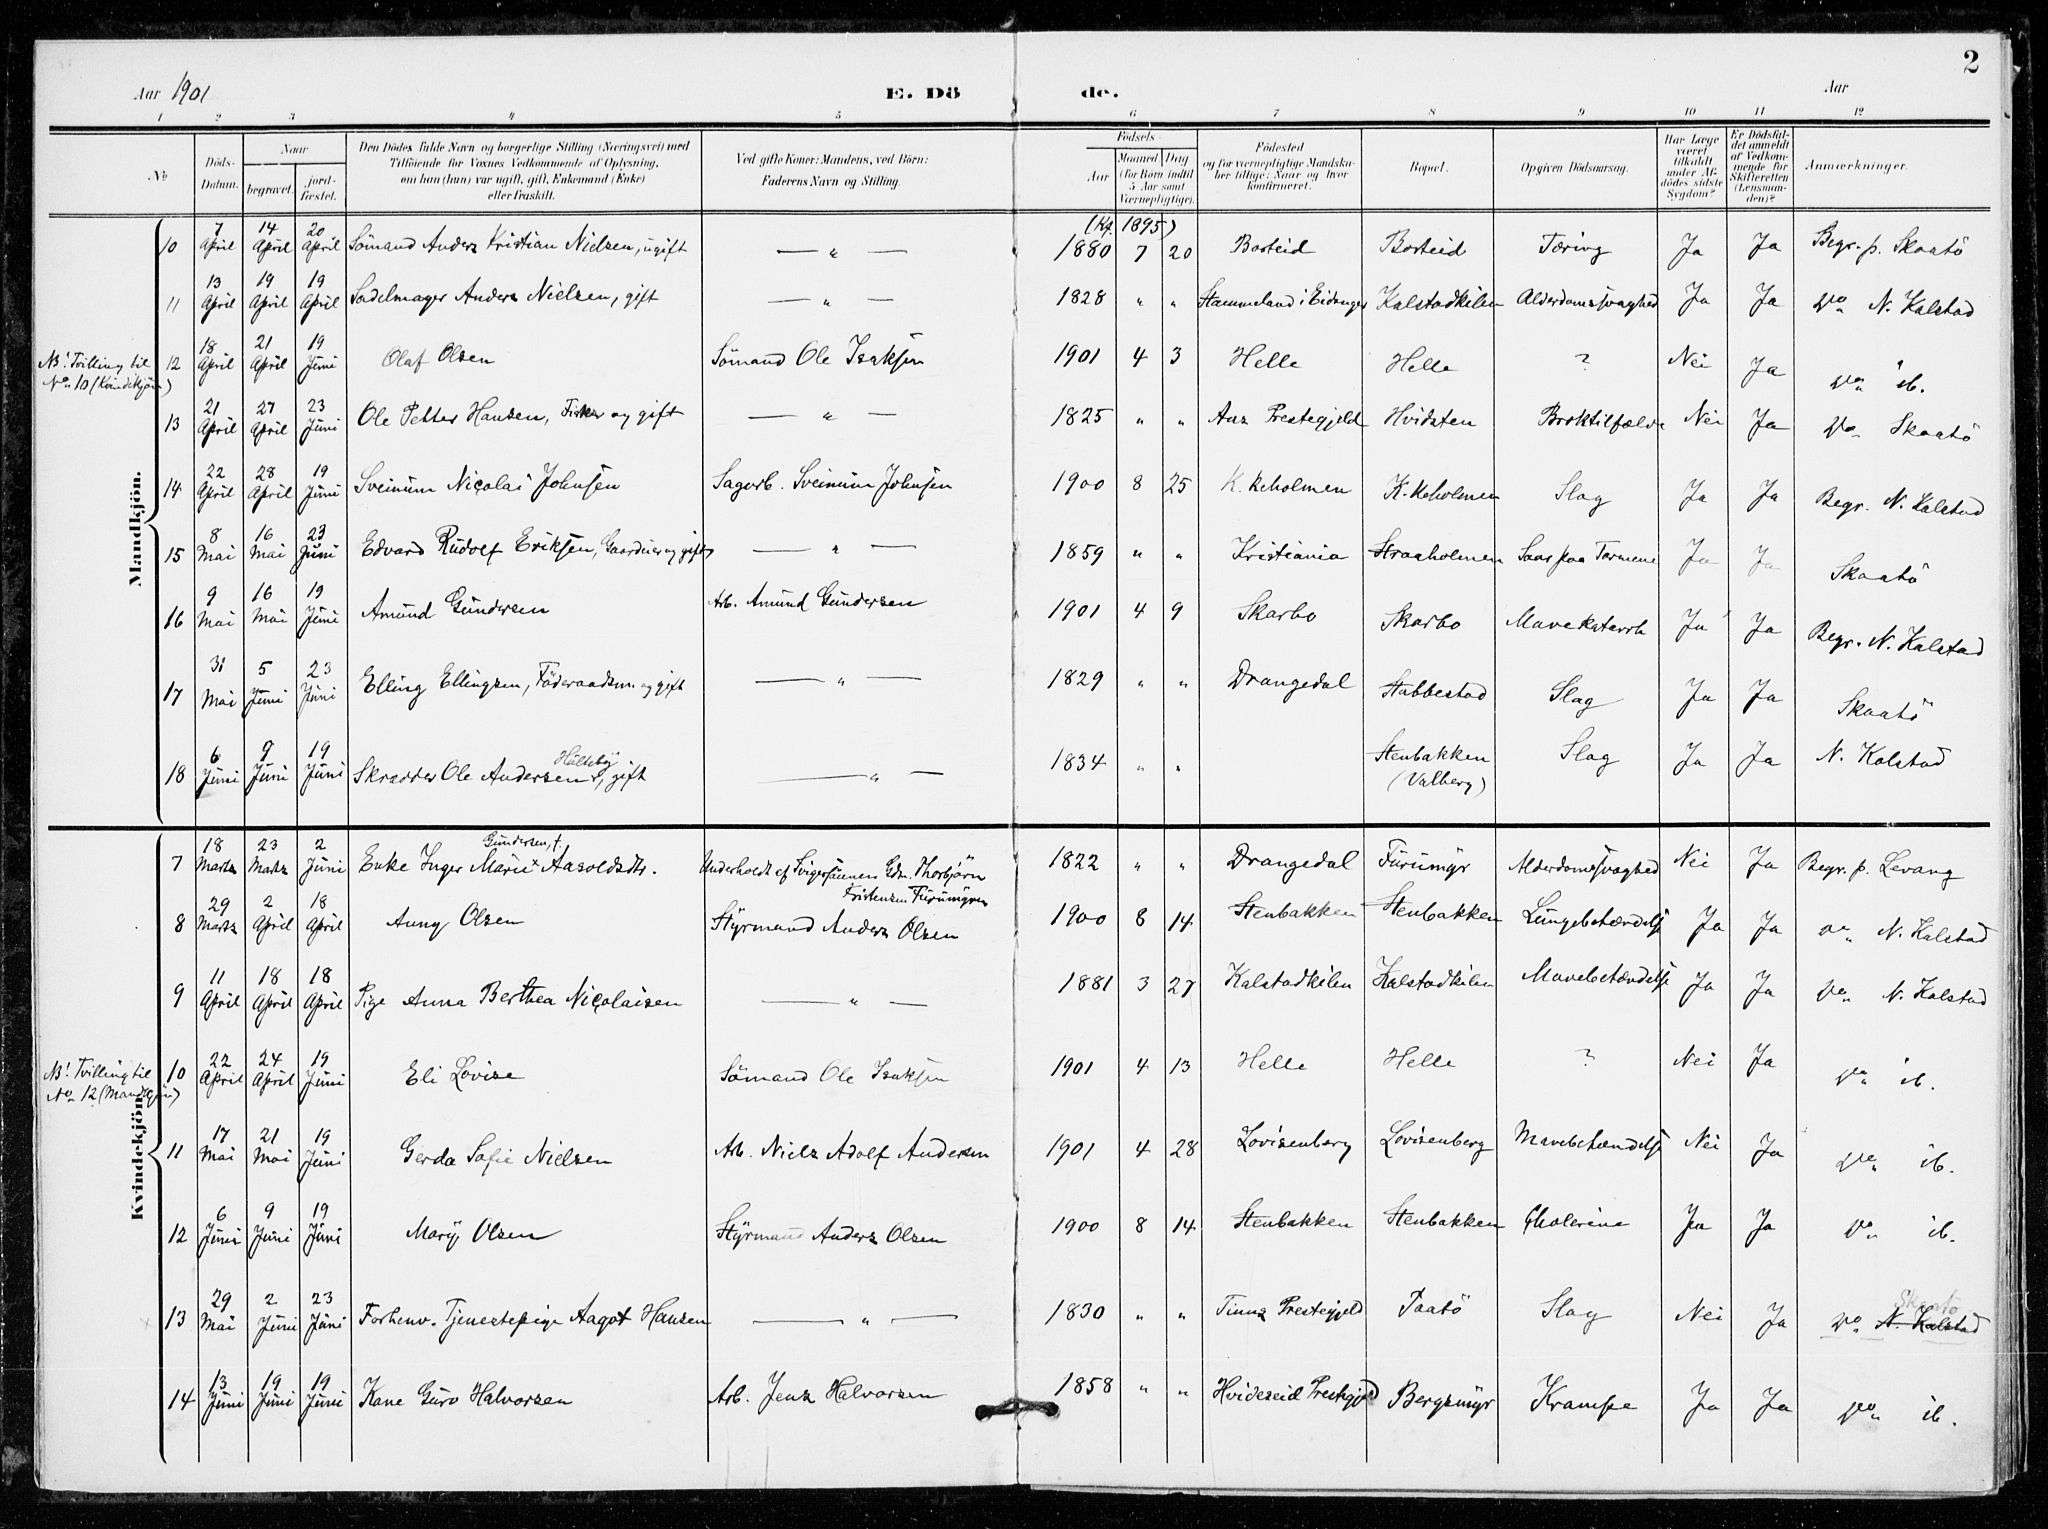 2
Aar 1901
E. Dö
de.
Aar
1 2 3 4 5 6 7 8 9 10 11 12
№
Döds-Datum.
Naar
begravet.
jord-fæstet.
Den Dödes fulde Navn og borgerlige Stilling (Næringsvei) med
Tilföiende for Voxnes Vedkommende af Oplysning,
om han (hun) var ugift, gift, Enkemand (Enke)
eller fraskilt.
Ved gifte Koner: Mandens, ved Börn:
Faderens Navn og Stilling.
Födsels-
Aar
Maaned Dag
(for Börn indtil
5 Aar samt
Værnepligtige).
Födested
og for værnepligtige Mandska-
ber tillige: Naar og hvor
konfirmeret.
Bopæl.
Opgiven Dödsaarsag.
Har Læge
været
tilkaldt
under Af-
dödes sidste
Sygdom?
Er Dödsfal-
det anmeldt
af Vedkom-
mende for
Skifteretten
(Lensman-
den)?
Anmærkninger.
Mandkjön.
(Kf. 1895)
10 7 April 14 April 20 April Sömand Anders Kristian Nielsen, ugift — " — 1880 7 20 Bosteid Bosteid Tæring Ja Ja Begr. p. Skaatö
11 13 April 19 April 19 April Sadelmager Anders Nielsen, gift — " — 1828 " " Stammeland i Eidanger Kalstadkilen Alderdomssvaghed Ja Ja Do N. Kalstad
NB! Tvilling til
No 10 (Kvindekjön)
12 18 April 21 April 19 Juni Olaf Olsen Sömand Ole Isaksen 1901 4 3 Helle Helle ? Nei Ja Do ib.
13 21 April 27 April 23 Juni Ole Petter Hansen, Fisker og gift — " — 1825 " " Aas Prestegjeld Hvidsten Broktilfælde Nei Ja Do Skaatö
14 22 April 28 April 19 Juni Sveinum Nicolai Johnsen Sagarb. Sveinum Johnsen 1900 8 25 K. keholmen K. keholmen Slag Ja Ja Begr. N. Kalstad
15 8 Mai 16 Mai 23 Juni Edvard Rudolf Eriksen, Gaardeier og gift — " — 1859 " " Kristiania Straaholmen Saar paa Tarmene Ja Ja Skaatö
16 9 Mai 16 Mai 19 Juni Amund Gundersen Arb. Amund Gundersen 1901 4 9 Skarbo Skarbo Mavekatarrh Ja Ja Begr. N. Kalstad
17 31 Mai 5 Juni 23 Juni Elling Ellingsen, Föderaadsm. og gift — " — 1829 " " Drangedal Stabbestad Slag Ja Ja Skaatö
Hulteby
18 6 Juni 9 Juni 19 Juni Skrædder Ole Andersen, gift — " — 1834 " " Stenbakken Slag Ja Ja N. Kalstad
(Valberg)
Kvindekjön.
Gundersen, †
7 18 Marts 23 Marts 2 Juni Enke Inger Marie Aasoldsdtr. Underholdt af Svigersönnen Gdm. Thorbjörn 1822 " " Drangedal Furumyr Alderdomssvaghed Nei Ja Begr. p. Levang
Kristensen Furumyren
8 29 Marts 2 April 18 April Anny Olsen Styrmand Anders Olsen 1900 8 14 Stenbakken Stenbakken Lungebetændelse Ja Ja Do N. Kalstad
9 11 April 18 April 18 April Pige Anna Berthea Nicolaisen — " — 1881 3 27 Kalstadkilen Kalstadkilen Mavebetændelse Ja Ja Do N. Kalstad
NB! Tvilling til
No 12 (Mandkjön)
10 22 April 24 April 19 Juni Eli Lovise Sömand Ole Isaksen 1901 4 13 Helle Helle ? Nei Ja Do ib.
11 17 Mai 21 Mai 19 Juni Gerda Sofie Nielsen Arb. Niels Adolf Andersen 1901 4 28 Lovisenberg Lovisenberg Mavebetændelse Nei Ja Do ib.
12 6 Juni 9 Juni 19 Juni Mary Olsen Styrmand Anders Olsen 1900 8 14 Stenbakken Stenbakken Cholerine Ja Ja Do ib.
Skaatö
13 29 Mai 2 Juni 23 Juni Forhenv. Tjenestepige Aagot Hansen — " — 1830 " " Tinns Prestegjeld Taatö Slag Nei Ja Do N. Kalstad
14 13 Juni 19 Juni 19 Juni Kane Guro Halvorsen Arb. Jens Halvorsen 1858 " " Hvideseid Prestegjeld Bergsmyr Krampe Ja Ja Do ib.